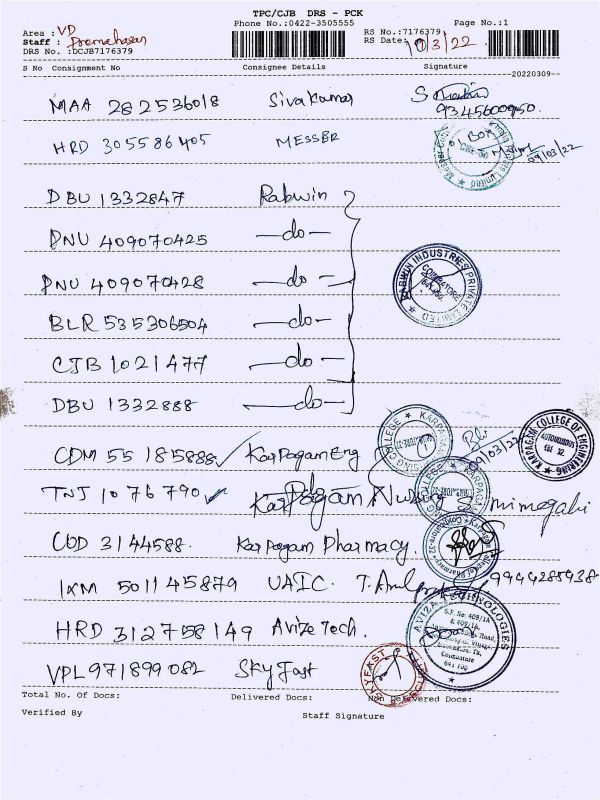 TPC/CJB DRS - PCK
Phone No.:0422-3505555 Page No.:1
Area : VD
Staff : Premahasan
DRS No. :DCJB7176379
RS No.:7176379
RS Date: 10/3/22
S No Consignment No Consignee Details Signature
20220309
MAA 282536018 Sivakumar
HRD 305586405 MESSER 09/03/22
DBU 1332847 Rabwin
PNU 409070425 -do-
PNU 409070428 -do-
BLR 535306504 -do-
CJB 1021477 -do-
DBU 1332888 -do-
RABWIN INDUSTRIES PRIVATE LIMITED
COIMBATORE
CDM 55185888 Karpagam Eng 09/03/22
KARPAGAM COLLEGE OF ENGINEERING
AUTONOMOUS
TNJ 1076790 Karpagam Nursing
COD 3144588 Karpagam Pharmacy.
IXM 501145879 UAIC. 9944285938
HRD 312758149 Avize Tech.
S.F No: 409/1A
Coimbatore
VPL 971899082 Sky Fast
SKYFAST
Total No. Of Docs: Delivered Docs: Non Delivered Docs:
Verified By Staff Signature